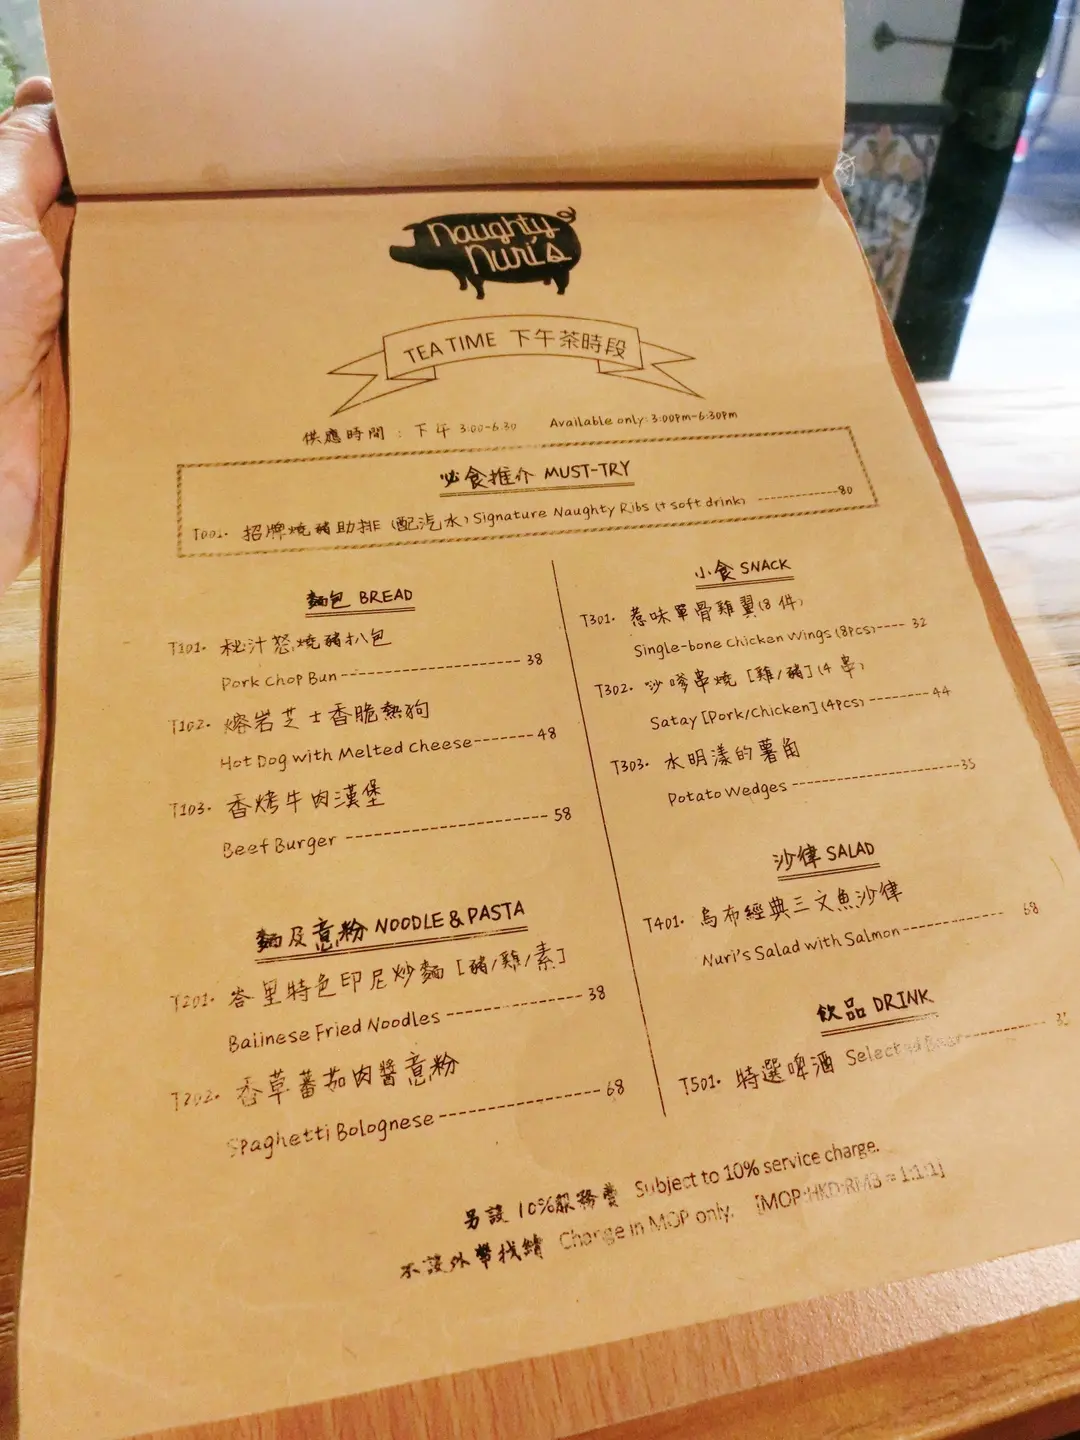 Naughty
Nuri's
TEA TIME 下午茶時段
供應時間 : 下午 3:00-6:30 Available only: 3:00pm-6:30pm
必食推介 MUST-TRY
T001. 招牌燒豬助排 (配汽水) Signature Naughty Ribs (+ soft drink) ------------80
麵包 BREAD
T101. 秘汁惹燒豬扒包
Pork Chop Bun-------------------- 38
T102. 熔岩芝士香脆熱狗
Hot Dog with Melted Cheese-------48
T103. 香烤牛肉漢堡
Beef Burger ----------------------- 58
麵及意粉 NOODLE & PASTA
T201. 峇里特色印尼炒麵 [豬/雞/素]
Baiinese Fried Noodles --------------- 38
T202. 香草蕃茄肉醬意粉
Spaghetti Bolognese ------------------ 68
小食 SNACK
T301. 惹味單骨雞翼 (8 件)
Single-bone Chicken Wings (8pcs)---- 32
T302. 沙嗲串燒 [雞/豬] (4 串)
Satay [Pork/Chicken] (4pcs) -------- 44
T303. 水明漾的薯角
Potato Wedges --------------------35
沙律 SALAD
T401. 烏布經典三文魚沙律
Nuri's Salad with Salmon------------ 68
飲品 DRINK
T501. 特選啤酒 Selected Beer-----------
另設 10%服務費 Subject to 10% service charge.
不設外幣找續 Change in MOP only. [MOP:HKD:RMB = 1:1:1]